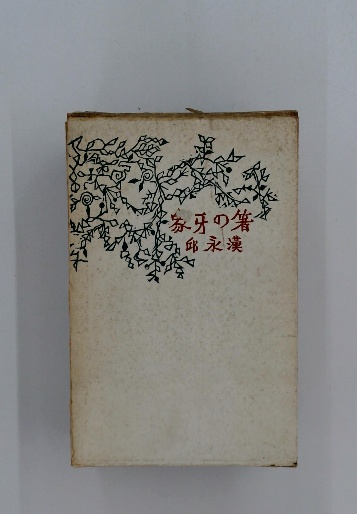 象牙の箸
邱永漢